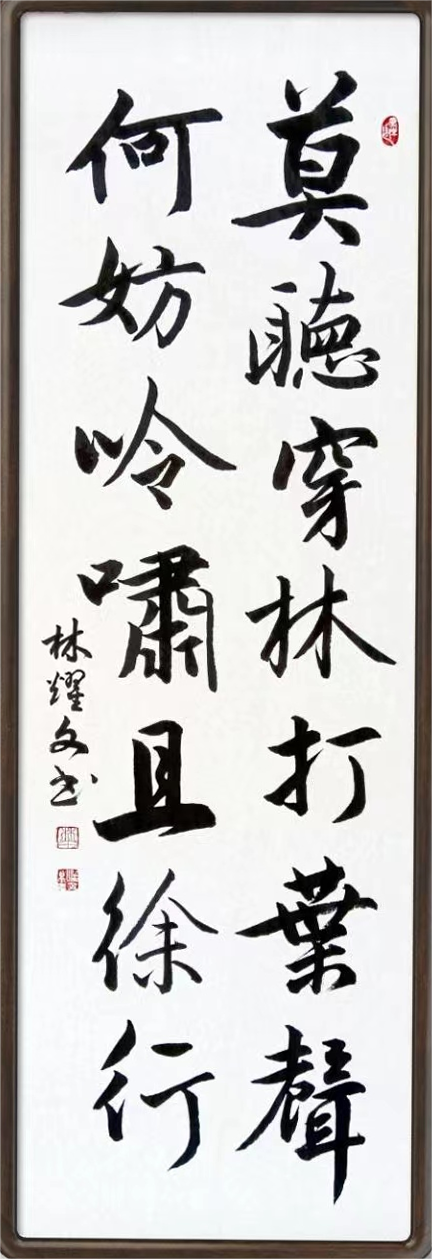 莫聽穿林打葉聲
何妨吟嘯且徐行
林耀文书